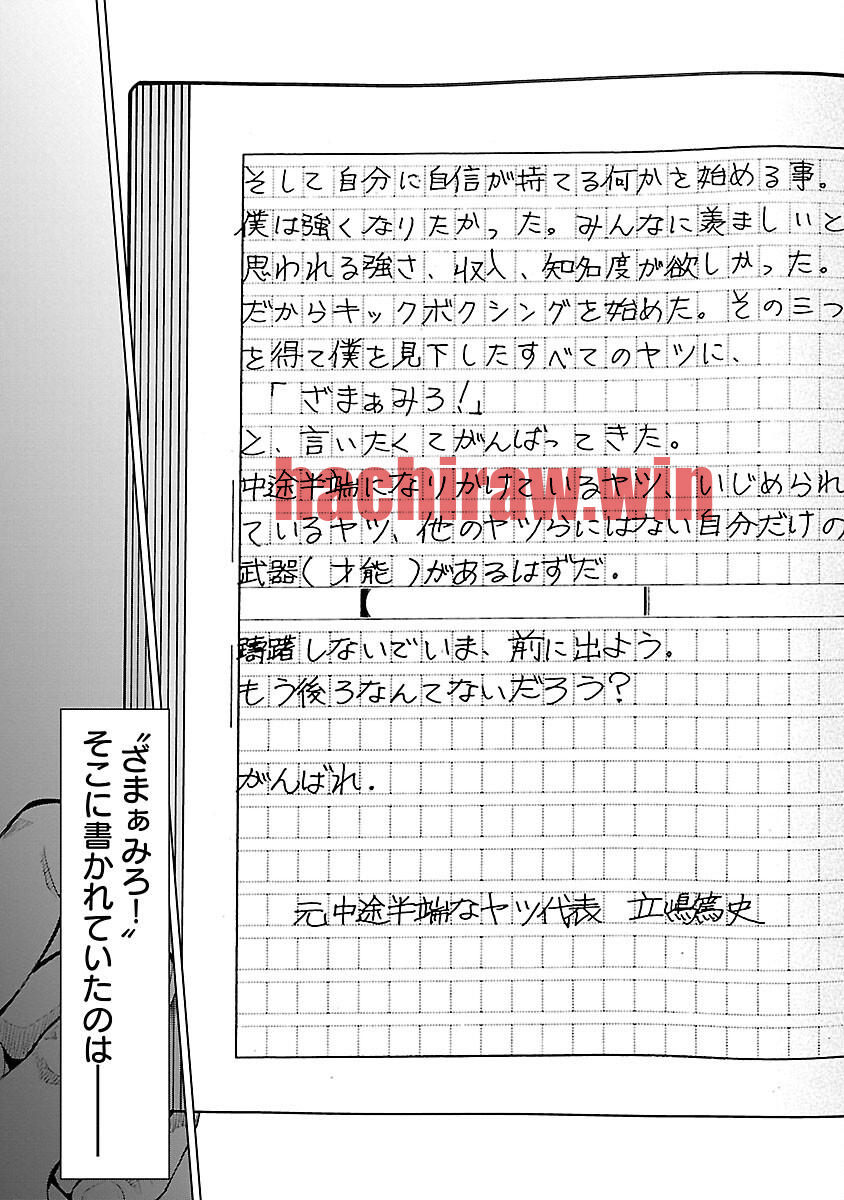 そして自分に自信が持てる何かを始める事。
僕は強くなりたかった。みんなに羨ましいと
思われる強さ、収入、知名度が欲しかった。
だからキックボクシングを始めた。その三つ
を得て僕を見下したすべてのヤツに、
「ざまぁみろ!」
と、言いたくてがんばってきた。
中途半端になりかけているヤツ、いじめられ
ているヤツ、他のヤツらにはない自分だけの
武器(才能)があるはずだ.
躊躇しないでいま、前に出よう。
もう後ろなんてないだろう?
がんばれ.
元中途半端なヤツ代表 立嶋篤史
hachiraw.win
〝ざまぁみろ!〟
そこに書かれていたのは――